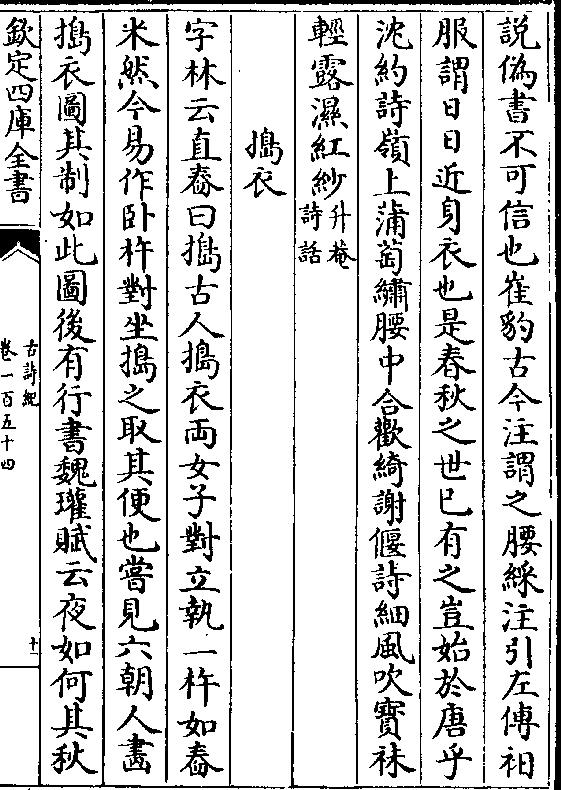 說偽書不可信也崔豹古今注謂之腰綵注引左傳衵
服謂日日近身衣也是春秋之世已有之豈始於唐乎
沈約詩嶺上蒲萄繡腰中合歡綺謝偃詩細風吹寳袜
輕露濕紅紗升菴詩話
擣衣
字林云直舂曰擣古人擣衣兩女子對立執一杵如舂
米然今易作卧杵對坐擣之取其便也嘗見六朝人畫
擣衣圖其制如此圖後有行書魏璀賦云夜如何其秋
欽定四庫全書
古詩紀
卷一百五十四
十